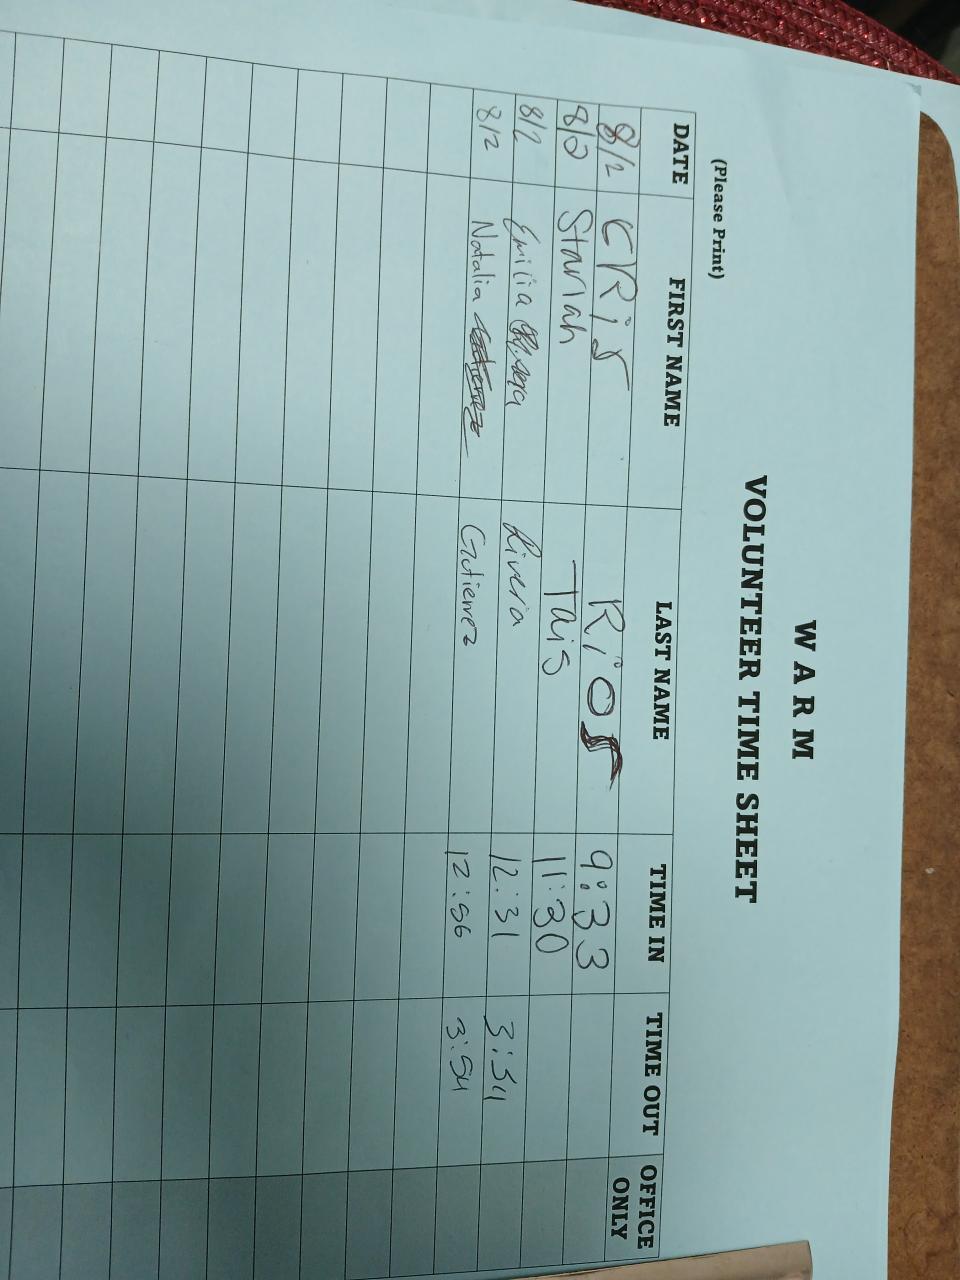 WARM
VOLUNTEER TIME SHEET
(Please Print)
DATE FIRST NAME LAST NAME TIME IN TIME OUT OFFICE ONLY
8/2 CRiS RiOS 9:33
8/2 Starlah Tais 11:30
8/2 Emilia Rivera 12:31 3:54
8/2 Natalia Gutierrez Gutierrez 12:56 3:54